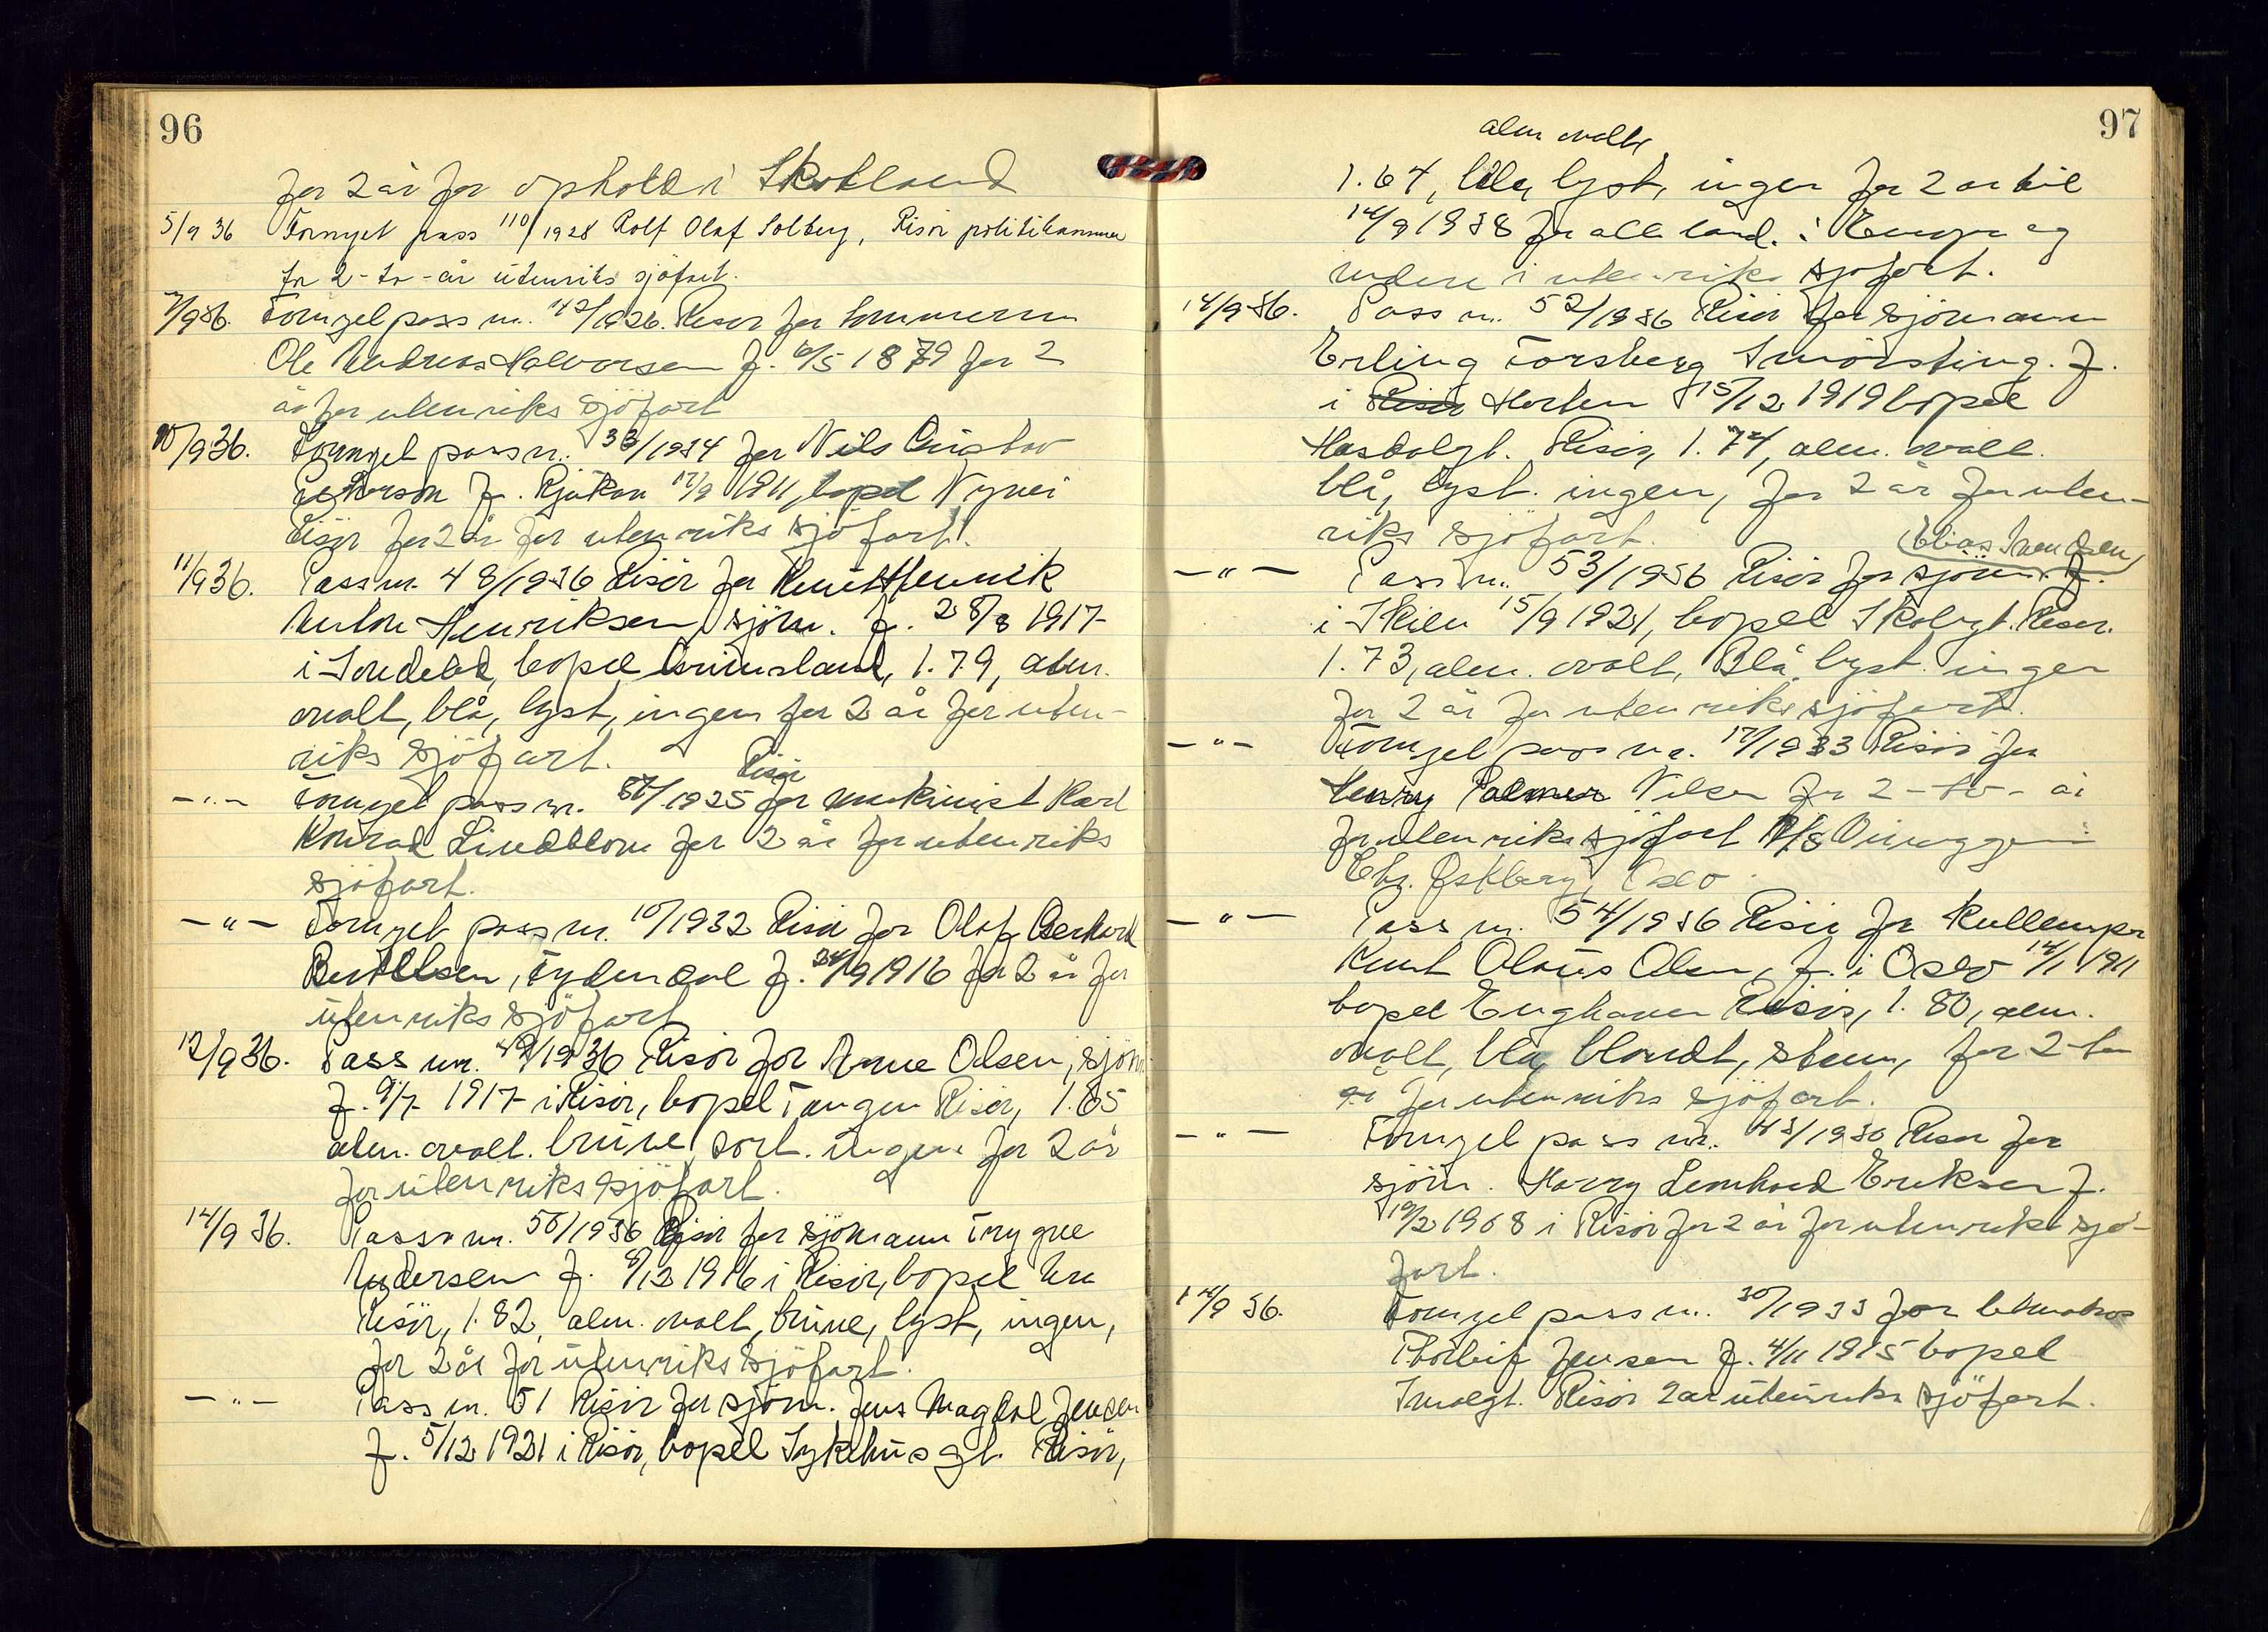 96
for 2 år for ophold i Skotland
5/9 36 Fornyet pass 110/1928 Rolf Olaf Solberg, Risör politikammer
for 2 - to - år utenriks sjöfart.
7/9 36. Fornyet pass nr. 42/1926. Risör for
Ole Andreas Halvorsen f. 6/5 1879 for 2
år for utenriks sjöfart
10/9 36. Fornyet pass nr. 33/1934 for Nils Gustav
f. Rjukan 17/9 1911, bopel
Risör for 2 år for utenriks sjöfart.
11/9 36. Pass nr. 48/1936 Risör for Knut Henrik
Anton Henriksen, sjöm. f. 28/8 1917
i Söndeled, bopel 1.79, alm.
ovalt, blå, lyst, ingen for 2 år for uten-
riks sjöfart.
Risör
— " — Fornyet pass nr. /1925 for maskinist Karl
Konrad Lindblom for 2 år for utenriks
sjöfart.
— " — Fornyet pass nr. 10/1932 Risör for Olaf Gerhard
Bertelsen, f. 24/9 1916 for 2 år for
utenriks sjöfart
12/9 36. Pass nr. 49/1936 Risör for Arne Olsen, sjöm
f. 9/7 1917 i Risör, bopel Tangen Risör, 1.65
alm. ovalt. brune, sort. ingen for 2 år
for utenriks sjöfart.
14/9 36. Pass nr. 50/1936 Risör for sjömann Trygve
Andersen f. 8/12 1916 i Risör, bopel Urn
Risör, 1.82, alm. ovalt, brune, lyst, ingen,
for 2 år for utenriks sjöfart.
— " — Pass nr. 51 Risör for sjöm. Jens Jensen
f. 5/12 1921 i Risör, bopel Sykehusgt. Risör,
97
alm ovalt
1.64, blå, lyst, ingen for 2 år til
14/9 1938 for alle land i Europa og
videre i utenriks sjöfart.
14/9 36. Pass nr. 52/1936 Risör for sjömann
Erling Torsberg Smörsting. f.
i Risör Horten 15/12 1919 bopel
Hasdalgt. Risör, 1.74, alm. ovalt.
blå, lyst. ingen, for 2 år for uten-
riks sjöfart.
Elias
— " — Pass nr. 53/1936 Risör for sjöm. f.
i Skien 15/9 1921, bopel Skolegt. Risör.
1.73, alm. ovalt, Blå, lyst. ingen
for 2 år for utenriks sjöfart.
— " — Fornyet pass nr. 17/1933 Risör for
Henry Palmer Nilsen for 2 - to - år
for utenriks sjöfart
Oslo
— " — Pass nr. 54/1936 Risör for
Knut Olaus Olsen, f. i Oslo 14/1 1911
bopel Enghaven Risör, 1.80, alm.
ovalt, blå, blondt, for 2 to
år for utenriks sjöfart.
— " — Fornyet pass nr. 43/1930 Risör for
sjöm. Harry Leonhard Eriksen f.
19/2 1908 i Risör for 2 år for utenriks sjö-
fart.
14/9 36. Fornyet pass nr. 30/1933 for letmatros
Thorleif Jensen f. 4/11 1915 bopel
Risör 2 år utenriks sjöfart.